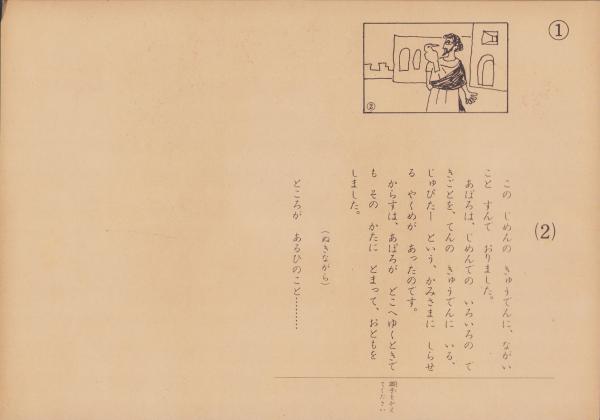 ①
②
(2)
この じめんの きゅうでんに、ながい
こと すんで おりました。
あぽろは、じめんでの いろいろの で
きごとを、てんの きゅうでんに いる、
じゅぴたー という、かみさまに しらせ
る やくめが あったのです。
からすは、あぽろが どこへゆくときで
も その かたに とまって、おともを
しました。
(ぬきながら)
ところが あるひのこと………
調子をかえ
てください